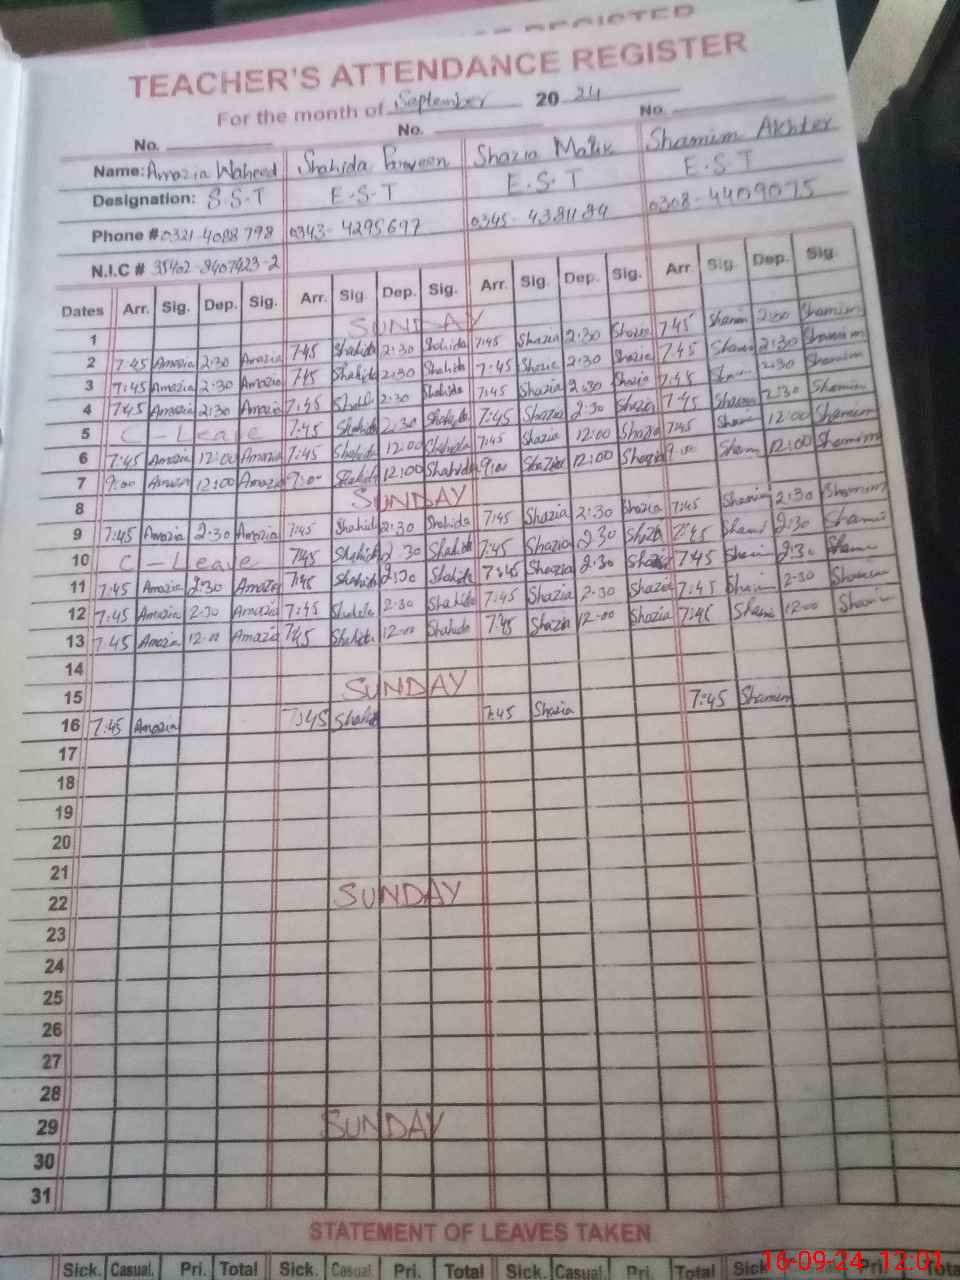 REGISTER
TEACHER'S ATTENDANCE REGISTER
For the month of September 2024
No. No. No.
Name: Amazia Waheed Shahida Parveen Shazia Malik Shamim Akhter
Designation: S.S.T E.S.T E.S.T E.S.T
Phone # 0321-4088798 0343-4295697 0345-4381184 0308-4409075
N.I.C # 35402-8407423-2
Dates Arr. Sig. Dep. Sig. Arr. Sig. Dep. Sig. Arr. Sig. Dep. Sig. Arr. Sig. Dep. Sig.
1 SUNDAY
2 7:45 Amazia 2:30 Amazia 7:45 Shahida 2:30 Shahida 7:45 Shazia 2:30 Shazia 7:45 Shamim 2:30 Shamim
3 7:45 Amazia 2:30 Amazia 7:45 Shahida 2:30 Shahida 7:45 Shazia 2:30 Shazia 7:45 2:30 Shamim
4 7:45 Amazia 2:30 Amazia 7:45 2:30 Shahida 7:45 Shazia 2:30 Shazia 7:45 2:30 Shamim
5 C-Leave 7:45 Shahida 2:30 Shahida 7:45 Shazia 2:30 Shazia 7:45 Shamim 2:30 Shamim
6 7:45 Amazia 12:00 Amazia 7:45 Shahida 12:00 Shahida 7:45 Shazia 12:00 Shazia 7:45 12:00 Shamim
7 9:00 12:00 Amazia 9:00 Shahida 12:00 Shahida 9:00 Shazia 12:00 Shazia 9:00 12:00 Shamim
8 SUNDAY
9 7:45 Amazia 2:30 Amazia 7:45 Shahida 2:30 Shahida 7:45 Shazia 2:30 Shazia 7:45 Shamim 2:30 Shamim
10 C-Leave 7:45 Shahida 2:30 Shahida 7:45 Shazia 2:30 7:45 2:30 Shamim
11 7:45 Amazia 2:30 Amazia 7:45 Shahida 2:30 Shahida 7:45 Shazia 2:30 Shazia 7:45 2:30
12 7:45 Amazia 2:30 Amazia 7:45 Shahida 2:30 Shahida 7:45 Shazia 2-30 Shazia 7:45 2-30 Shamim
13 7:45 Amazia 12-00 Amazia 7:45 Shahida 12-00 Shahida 7:45 Shazia 12-00 Shazia 7:45 12-00
14
15 SUNDAY
16 7:45 Amazia 7:45 Shahida 7:45 Shazia 7:45 Shamim
17
18
19
20
21
22 SUNDAY
23
24
25
26
27
28
29 SUNDAY
30
31
STATEMENT OF LEAVES TAKEN
Sick. Casual. Pri. Total Sick. Casual. Pri. Total Sick. Casual. Pri. Total Sick. Pri. Total
16-09-24 12:01